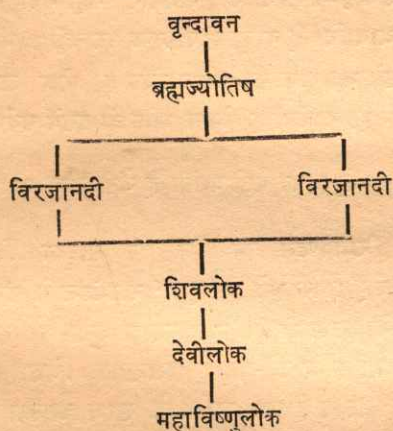 वृन्दावन
ब्रह्मज्योतिष
विरजानदी विरजानदी
शिवलोक
देवीलोक
महाविष्णुलोक